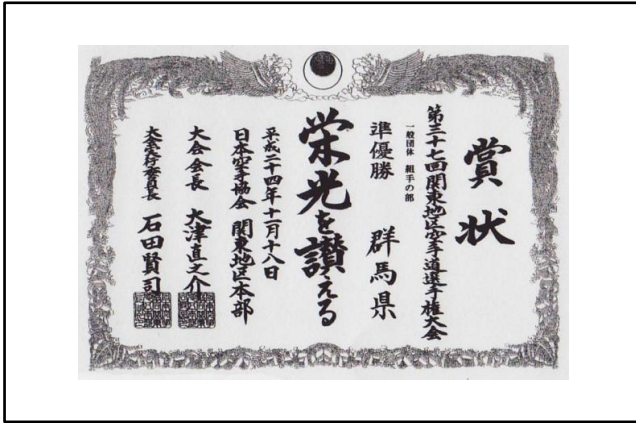 賞状
第三十七回関東地区空手道選手権大会
一般団体 組手の部
準優勝 群馬県
栄光を讃える
平成二十四年十一月十八日
日本空手協会 関東地区本部
大会会長 大津直之介
大会実行委員長 石田賢司